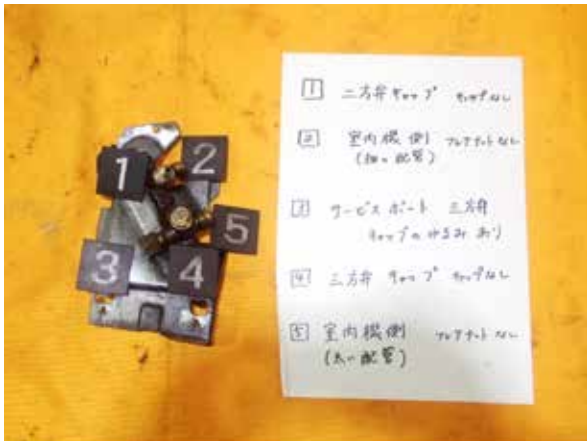 1
2
3
4
5
1 二方弁キャップ キャップなし
2 室内機側 フレアナットなし
(細い配管)
3 サービスポート 三方弁
キャップのゆるみあり
4 三方弁 キャップ キャップなし
5 室内機側 フレアナットなし
(太い配管)